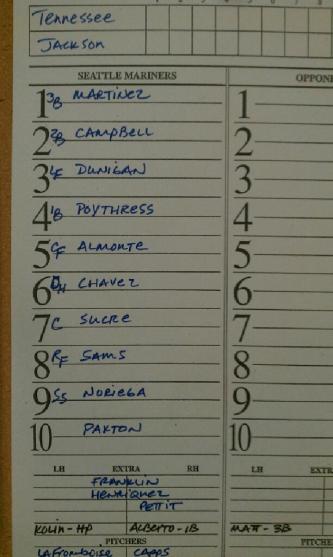 Tennessee
JACKSON
SEATTLE MARINERS OPPONE
1 3B MARTINEZ 1
2 2B CAMPBELL 2
3 LF DUNIGAN 3
4 1B POYTHRESS 4
5 CF ALMONTE 5
6 DH CHAVEZ 6
7 C SUCRE 7
8 RF SAMS 8
9 SS NORIEGA 9
10 PAXTON 10
LH EXTRA RH LH EXTR
FRANKLIN
HENRIQUEZ
PETTIT
KOLIN-HP ALBERTO-1B MATT-3B
PITCHERS PITC
LAFROMBOISE CAPPS